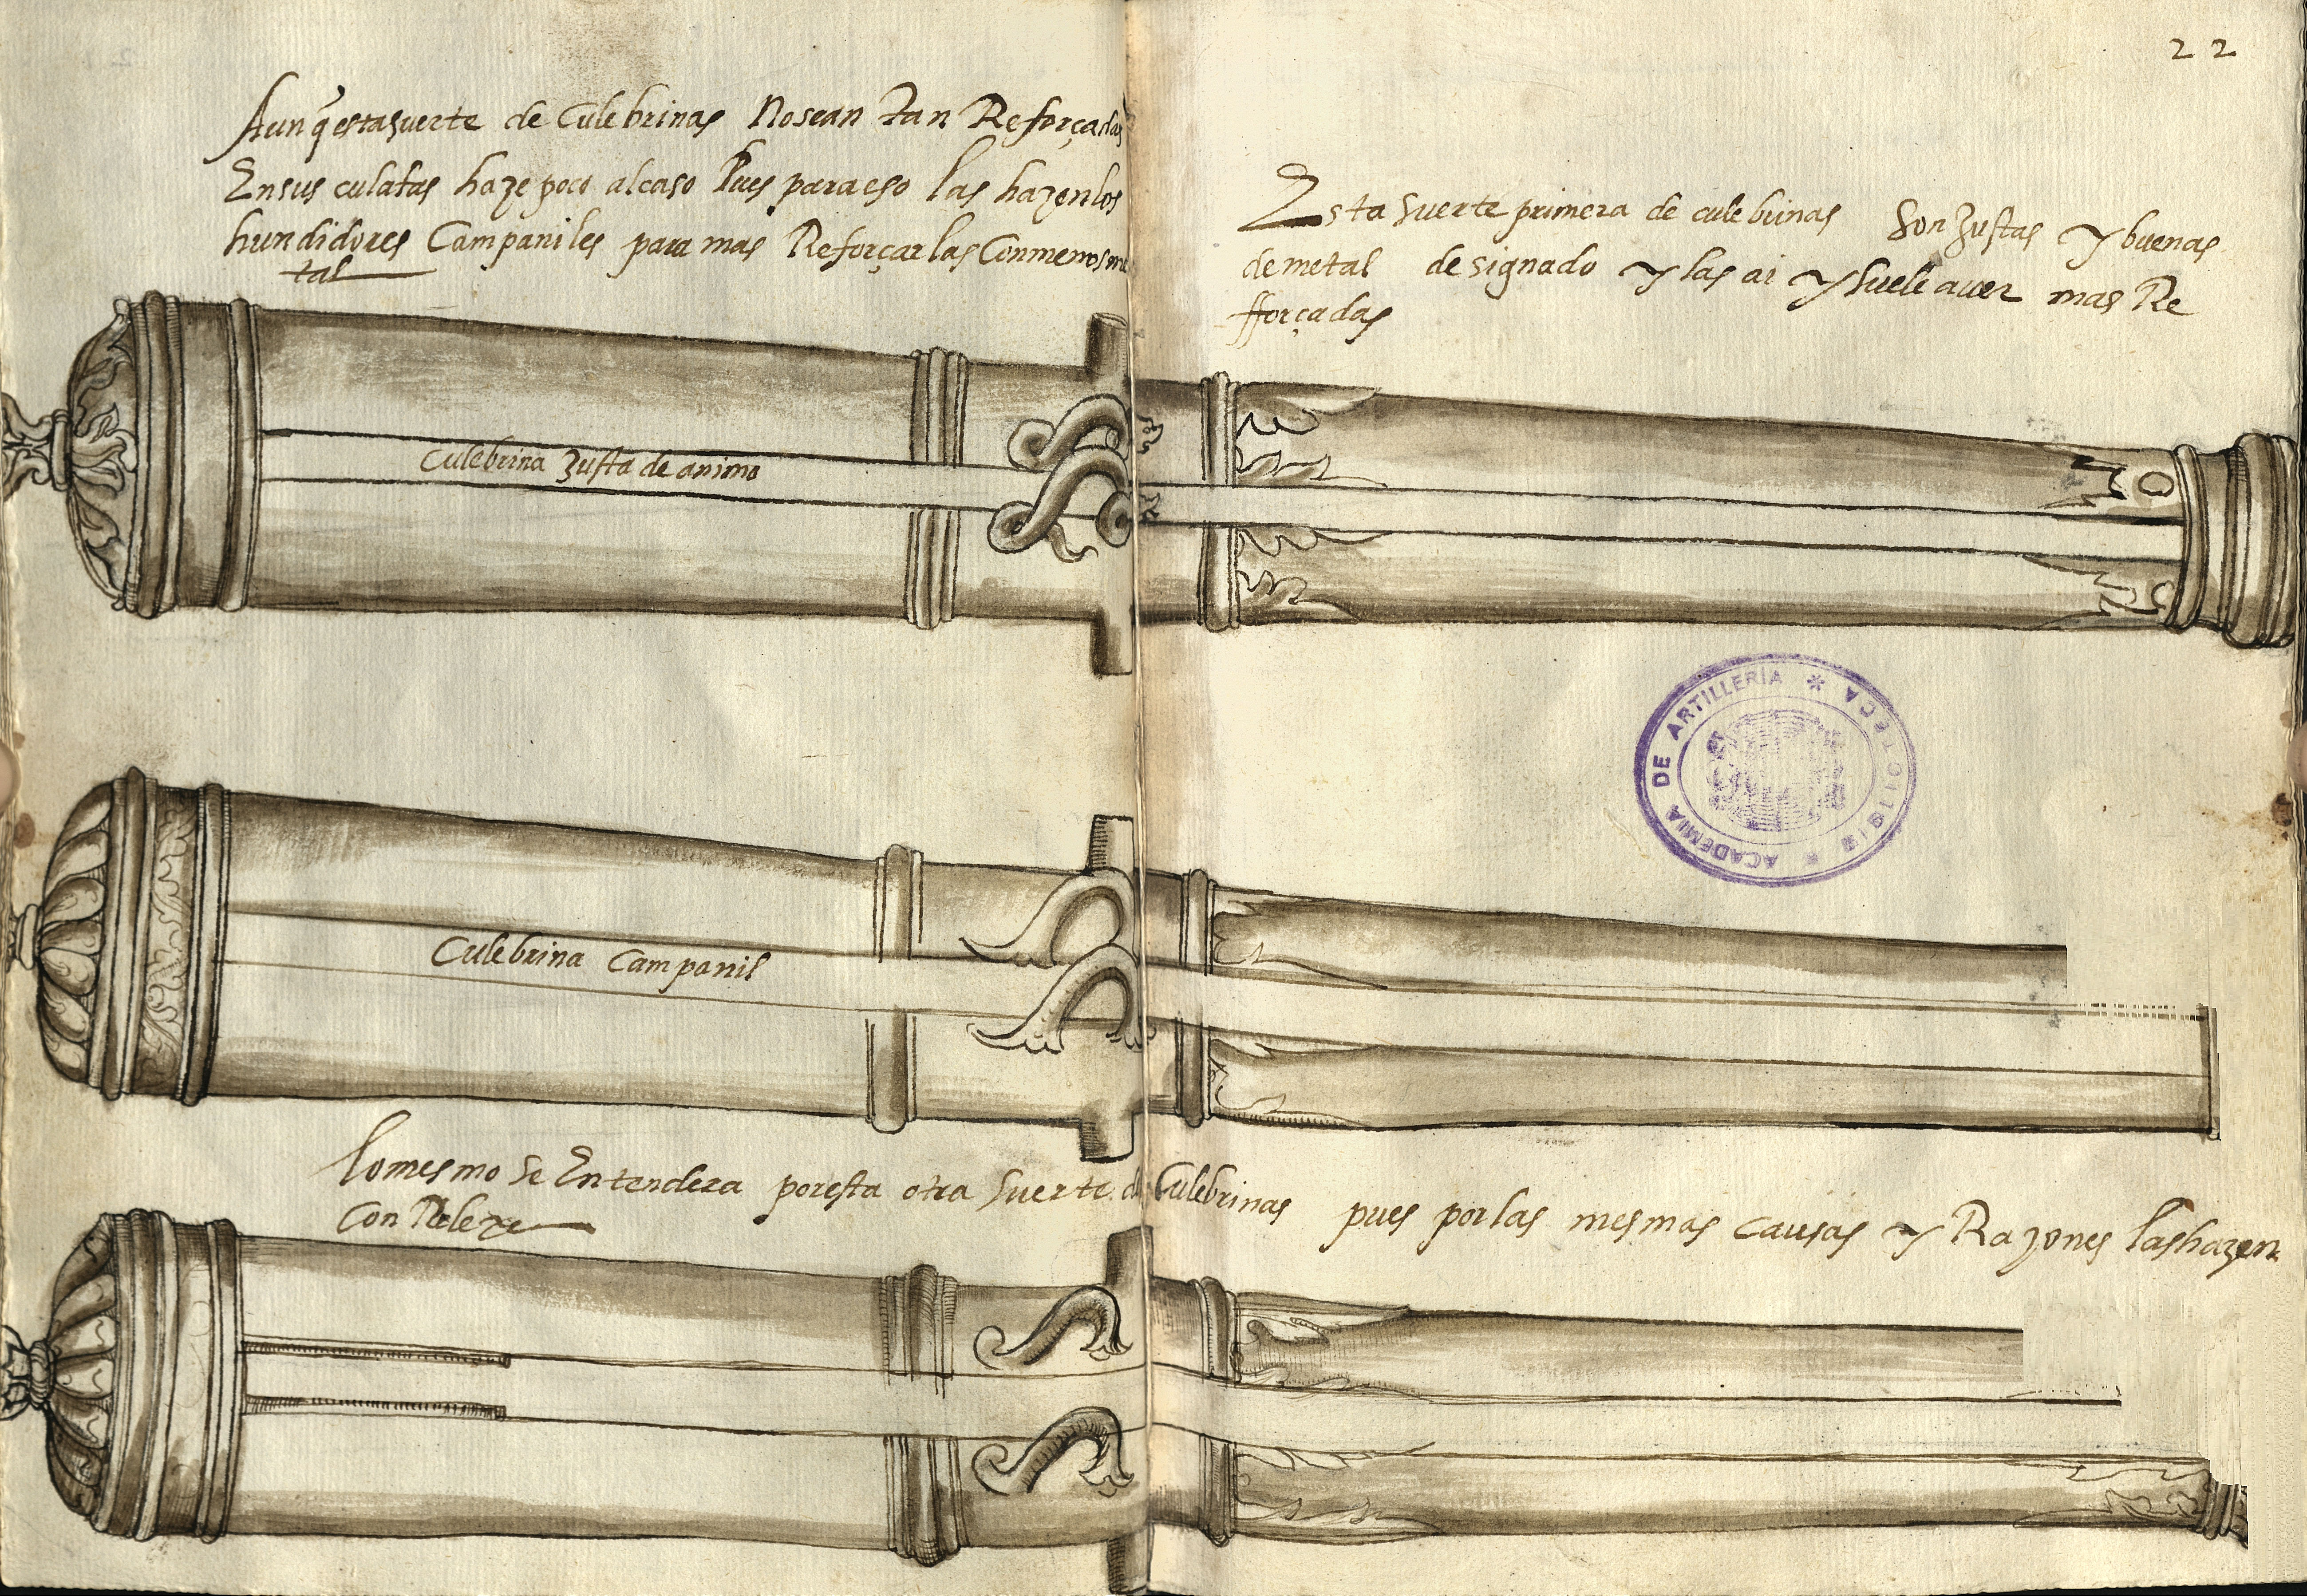 22
Aunq̃ esta suerte de Culebrinas No sean tan Reforçadas
En sus culatas haze poco al caso Pues para eso las hazen los
hundidores Campaniles para mas Reforçar las Con menos me
tal
Esta suerte primera de culebrinas son Justas y buenas
de metal designado y las ai y suele auer mas Re
fforçadas
Culebrina Justa de anima
BIBLIOTECA * ACADEMIA DE ARTILLERÍA *
Culebrina Campanil
lo mesmo se Entendera por esta otra suerte de Culebrinas pues por las mesmas causas y Razones las hazen
Con Relexe